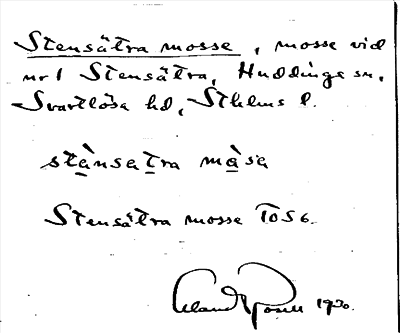 Stensätra mosse, mosse vid
nr 1 Stensätra, Huddinge sn,
Svartlösa hd, Sthlms l.
stа̀nsatra mа̀sa
Stensätra mosse TOS6.
1930.